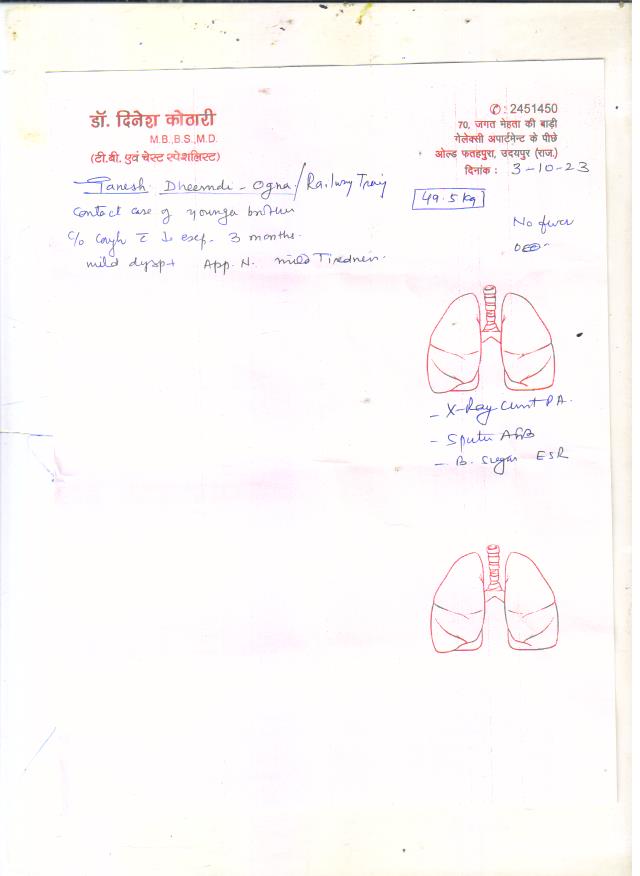 डॉ. दिनेश कोठारी
M.B.,B.S.,M.D.
(टी.बी. एवं चेस्ट स्पेशलिस्ट)
✆: 2451450
70, जगत मेहता की बाड़ी
गेलेक्सी अपार्टमेन्ट के पीछे
ओल्ड फतहपुरा, उदयपुर (राज.)
दिनांक : 3-10-23
Ganesh Dheemdi - Ogna / Railway
49.5 kg
Contact case of younger brother
No fever
C/o cough c̄ ↓ exp. 3 months.
mild dysp+ App. N. mild Tiredness.
- X-Ray Chest PA.
- Sputum AFB
- B. Sugar ESR